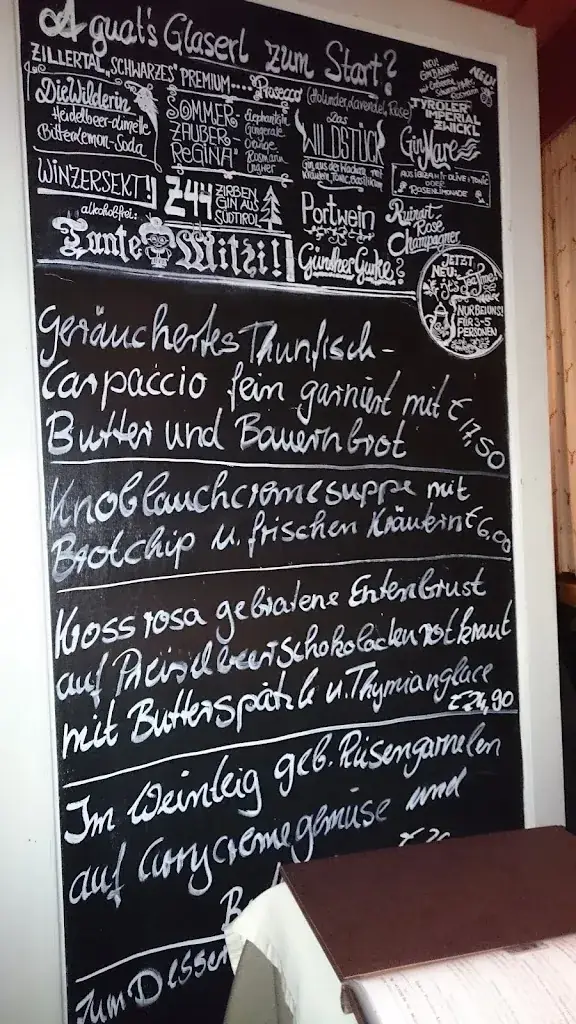 A guat's Glaserl zum Start?
ZILLERTAL „SCHWARZES" PREMIUM....
Prosecco (Holunder, Lavendel, Rose)
NEU!
NEU!
TYROLER
IMPERIAL
ZWICKL
Die Wilderin
Heidelbeer-Limette
Bitterlemon-Soda
SOMMER
ZAUBER
"REGINA"
Elephantgin
Gingerale
Orange
Rosmarin
Ingwer
Das
WILDSTÜCK
Gin aus der Wachau, mit
Kräutern, Tonic, Basilikum
Gin Mare
AUS IBIZA IHR OLIVE & TONIC
ODER
ROSENLIMONADE
WINZERSEKT!
Z44
ZIRBEN
GIN AUS
SÜDTIROL
Portwein
Ruinart-
Rosé
Champagner
alkoholfrei:
Tante Mitzi!
Günther Gurke?
JETZT
NEU:
It's Tea Time!
NUR BEI UNS!
FÜR 3-5
PERSONEN
Geräuchertes Thunfisch-
Carpaccio fein garniert mit € 17,50
Butter und Bauernbrot
Knoblauchcremesuppe mit
Brotchip u. frischen Kräutern € 6,00
Kross rosa gebratene Entenbrust
auf Preiselbeerschokoladenrotkraut
mit Butterspätzle u. Thymianglace
€ 24,90
Im Weinteig geb. Riesengarnelen
auf Currycremegemüse und
Zum Dessert